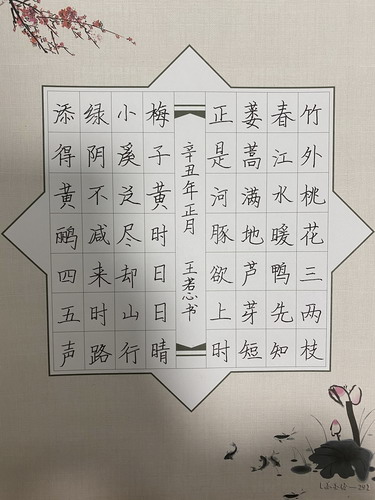 竹外桃花三两枝
春江水暖鸭先知
蒌蒿满地芦芽短
正是河豚欲上时
辛丑年正月 王若心书
梅子黄时日日晴
小溪泛尽却山行
绿阴不减来时路
添得黄鹂四五声